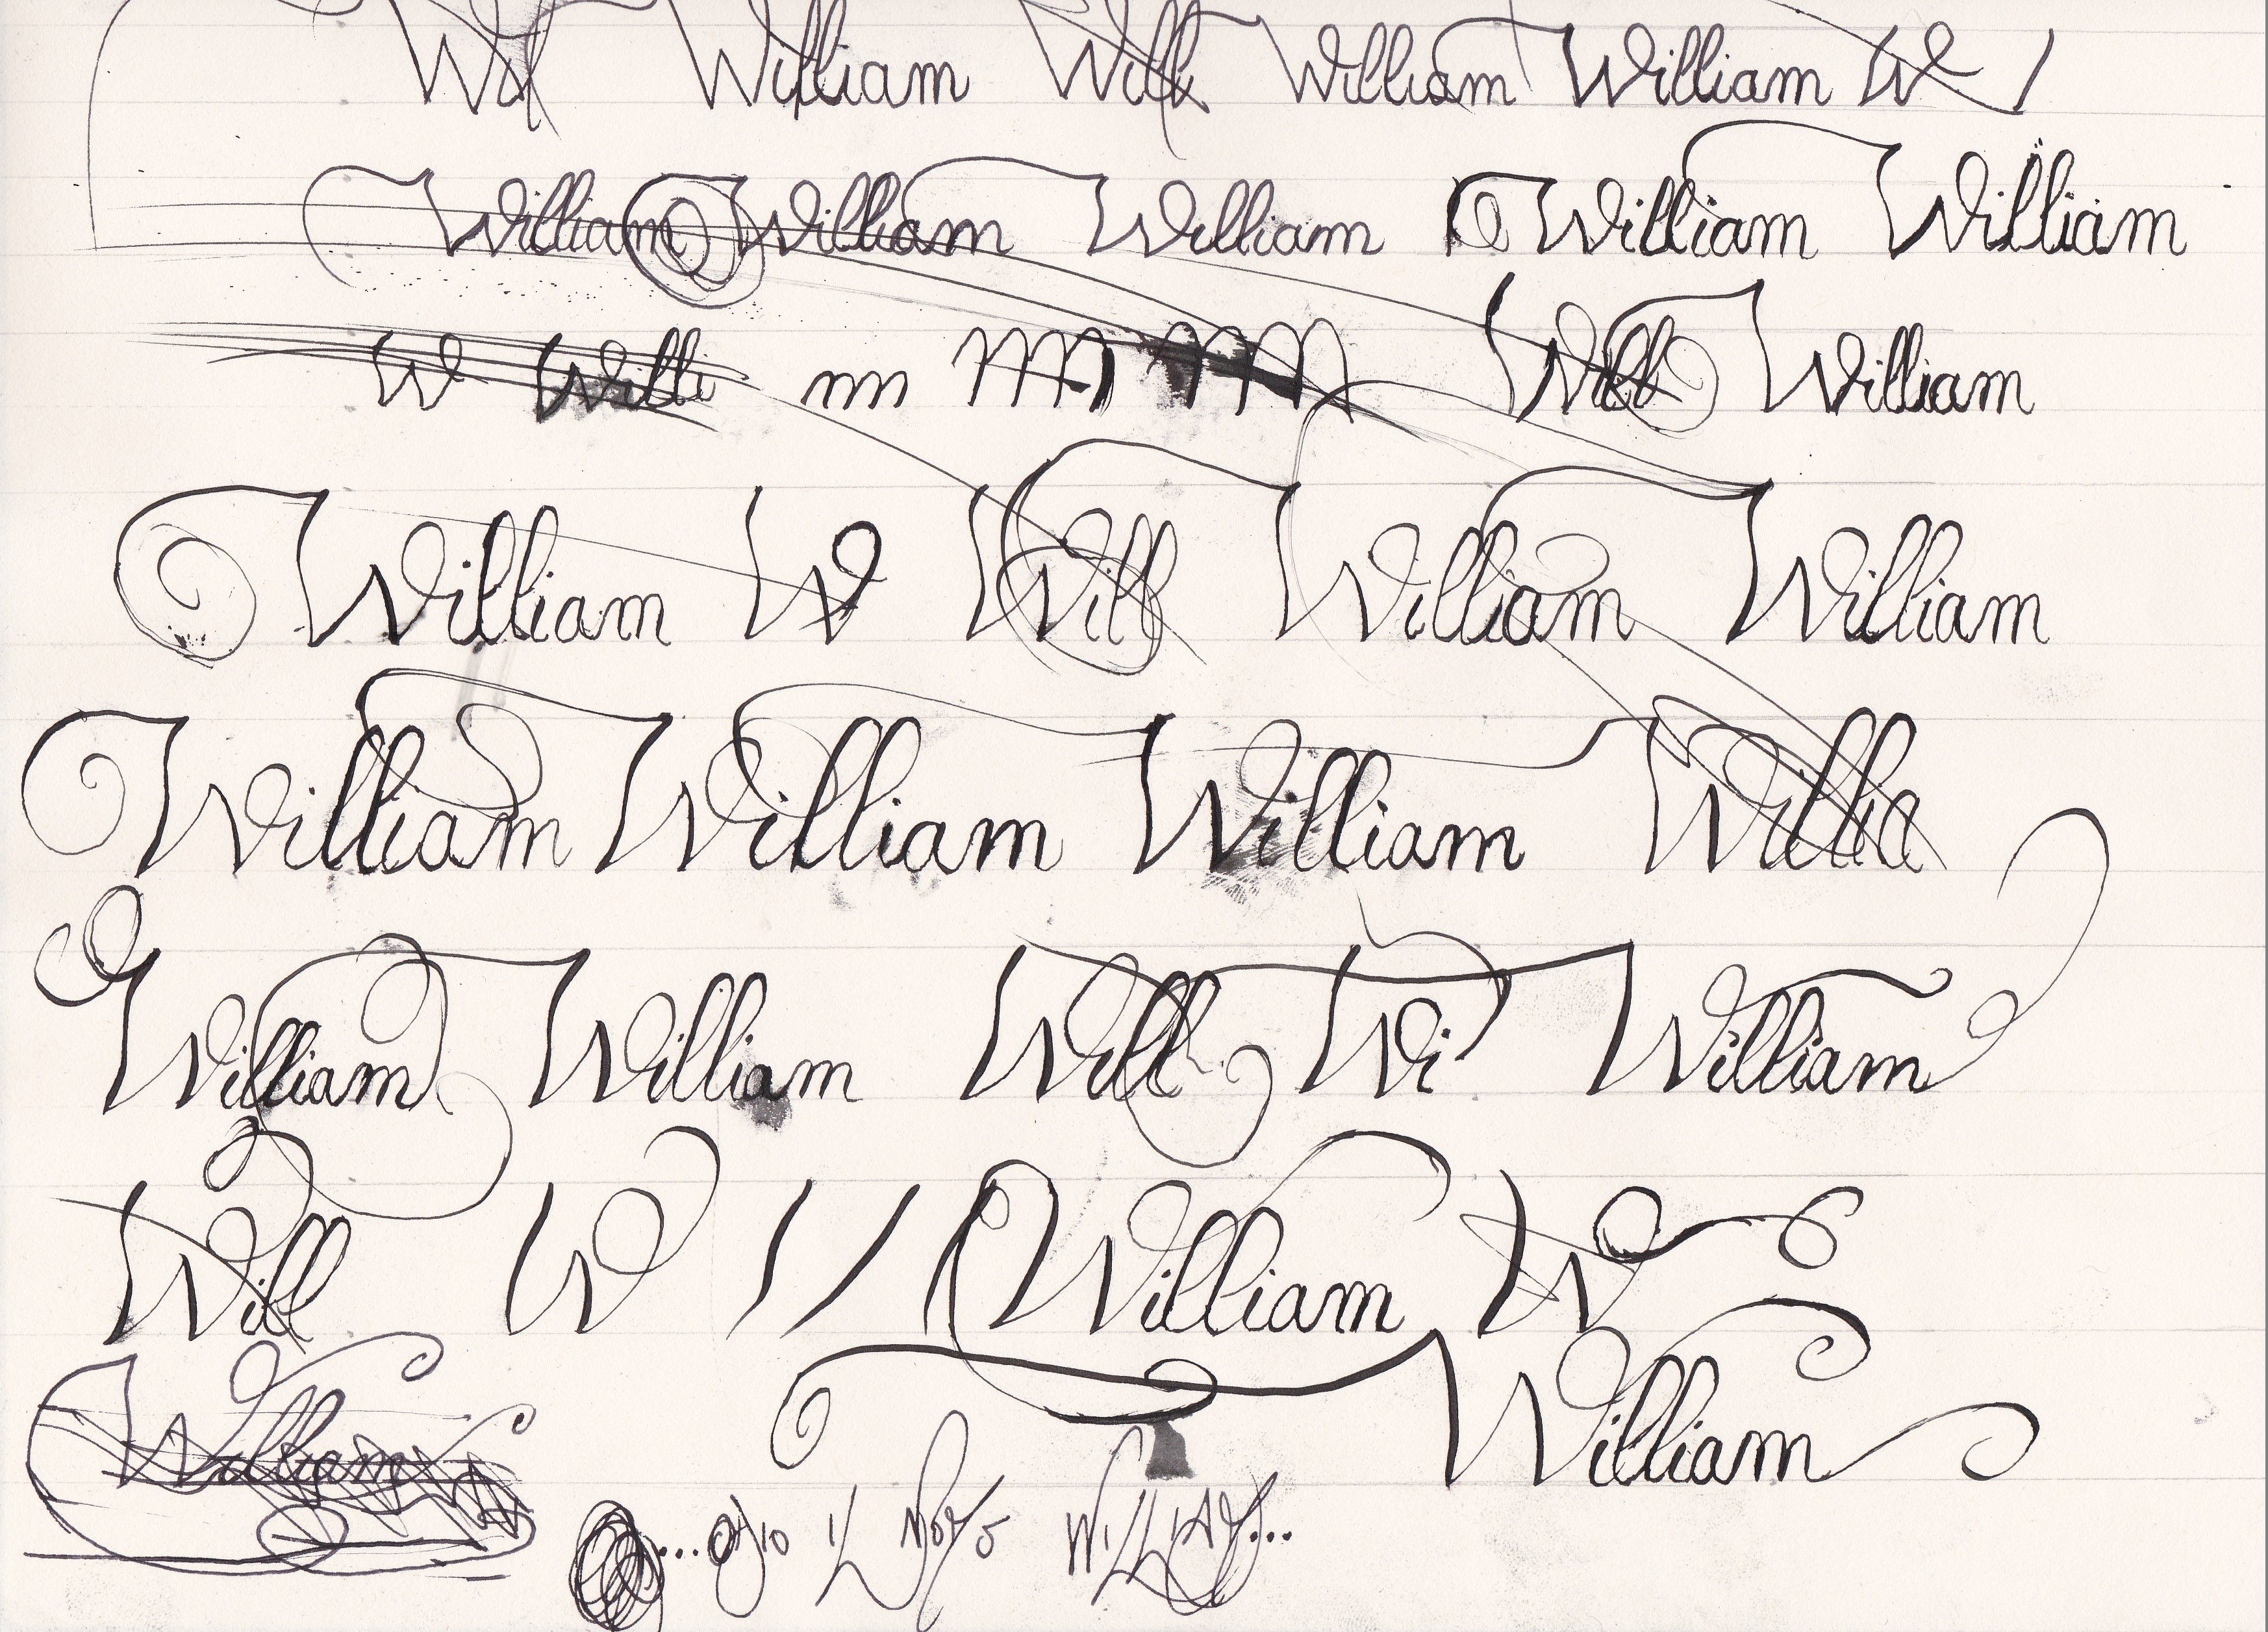 Wil William Will William William W
William William William William William
W Willi m m m m Will William
William W Will William William
William William William Willia
William William Will Wi William
Will W William W
William William
...odio il nome William...